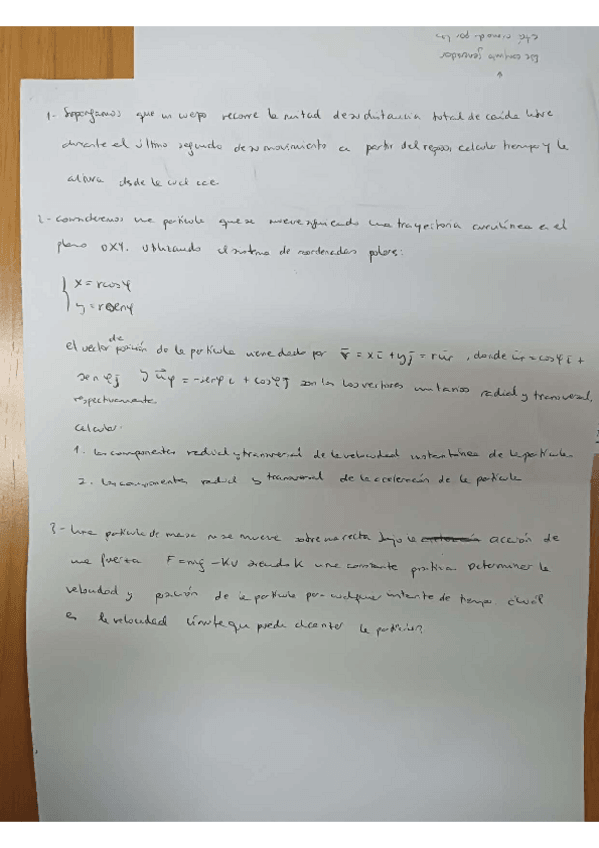 1- Supongamos que un cuerpo recorre la mitad de su distancia total de caída libre
durante el último segundo de su movimiento a partir del reposo, calcula tiempo y la
altura desde la cual cae
2- consideremos una partícula que se mueve siguiendo una trayectoria curvilínea en el
plano OXY. Utilizando el sistema de coordenadas polares:
x = r cos φ
y = r sen φ
el vector de posición de la partícula viene dado por r̄ = x i + y j = r ūr, donde ūr = cos φ i +
sen φ j y ūφ = -sen φ i + cos φ j son los vectores unitarios radial y transversal,
respectivamente.
Calcular:
1. Las componentes radial y transversal de la velocidad instantánea de la partícula
2. Las componentes radial y transversal de la aceleración de la partícula
3- Una partícula de masa m se mueve sobre una recta bajo la acción de
una fuerza F = mg - KV siendo K una constante positiva. Determinar la
velocidad y posición de la partícula para cualquier instante de tiempo ¿cuál
es la velocidad límite que puede alcanzar la partícula?